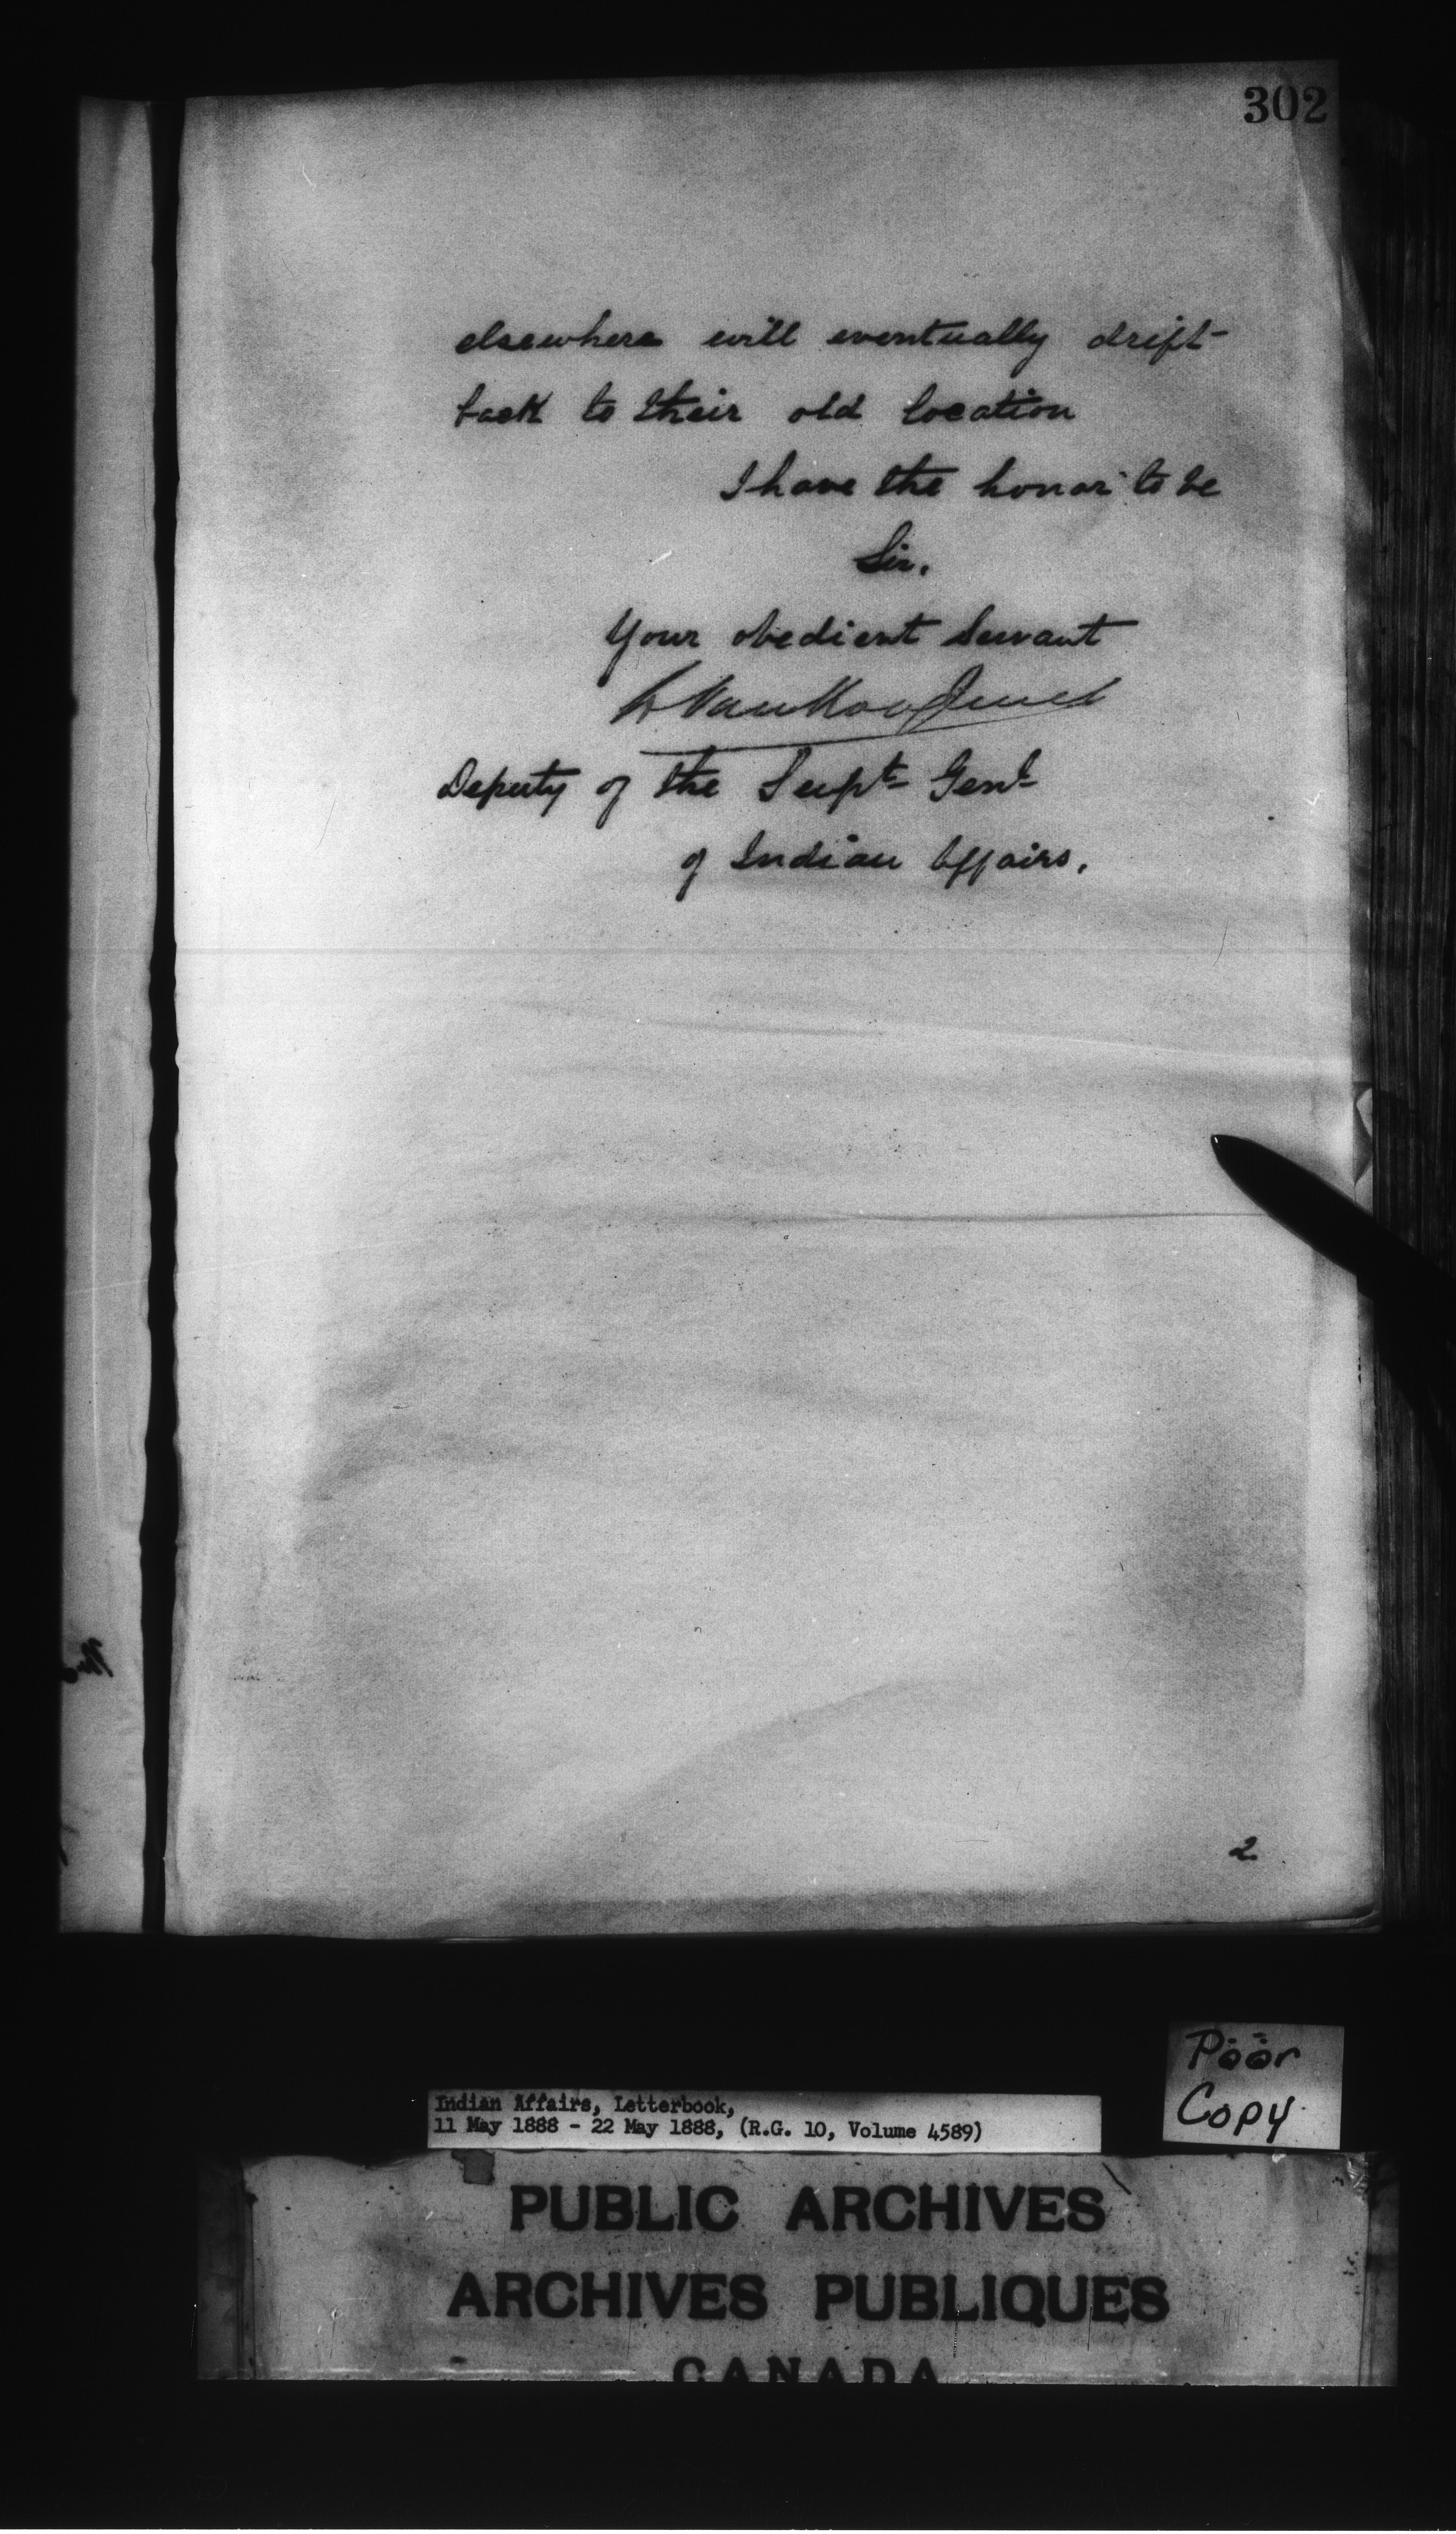 302
elsewhere will eventually drift
back to their old location
I have the honor to be
Sir,
Your obedient Servant
L VanKoughnet
Deputy of the Supt Genl
of Indian Affairs.
2
Poor
Copy
Indian Affairs, Letterbook,
11 May 1888 - 22 May 1888, (R.G. 10, Volume 4589)
PUBLIC ARCHIVES
ARCHIVES PUBLIQUES
CANADA